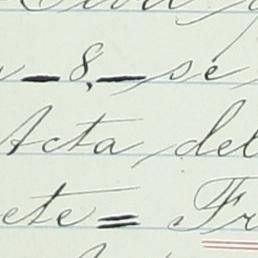 8, — se
Acta del
ete = Fr